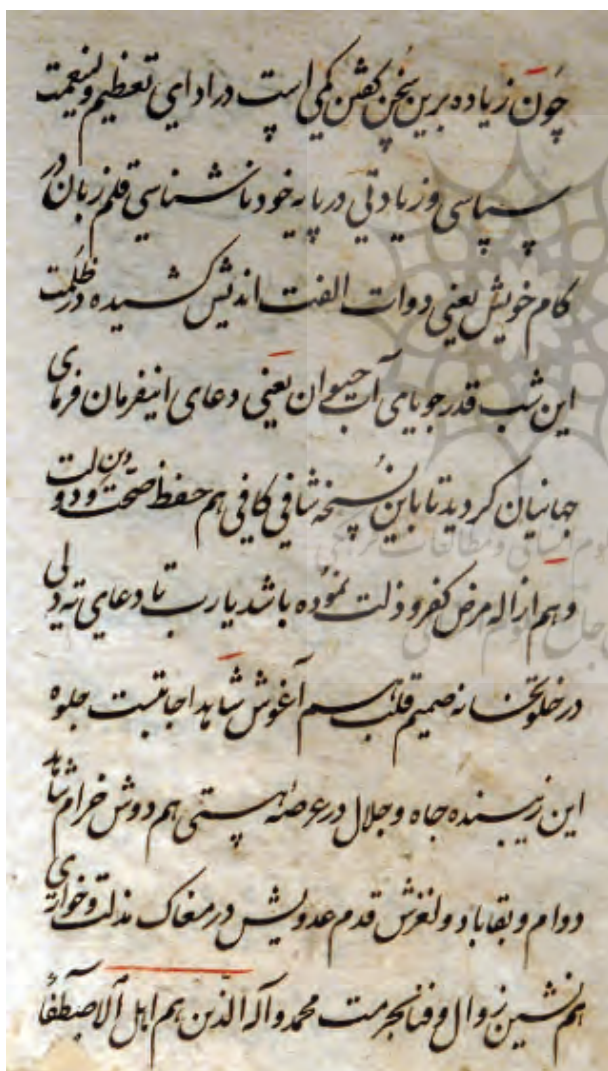 چون زیاده برین سخن گفتن کمی است در ادای تعظیم ولینعمت
سپاسی و زیادتی در پایه خود ناشناسی قلم زبان در
کام خویش یعنی دوات الفت اندیش کشیده در ظلمت
این شب قدر جویای آب حیوان یعنی دعای اینفرمان فرمای
جهانیان کردید تا باین نسخه شافی کافی هم حفظ صحت دین و دولت
و هم ازاله مرض کفر و ذلت نموده باشد یا رب تا دعای ته دلی
در خلوتخانه صمیم قلب هم آغوش شاهد اجابتست جلوه
این زیبنده جاه و جلال در عرصه هستی هم دوش خرام شاهد
دوام و بقا باد و لغزش قدم عدویش در مغاک مذلت و خواری
هم نشین زوال و فنا بحرمت محمد و آله الذین هم اهل الاصطفا